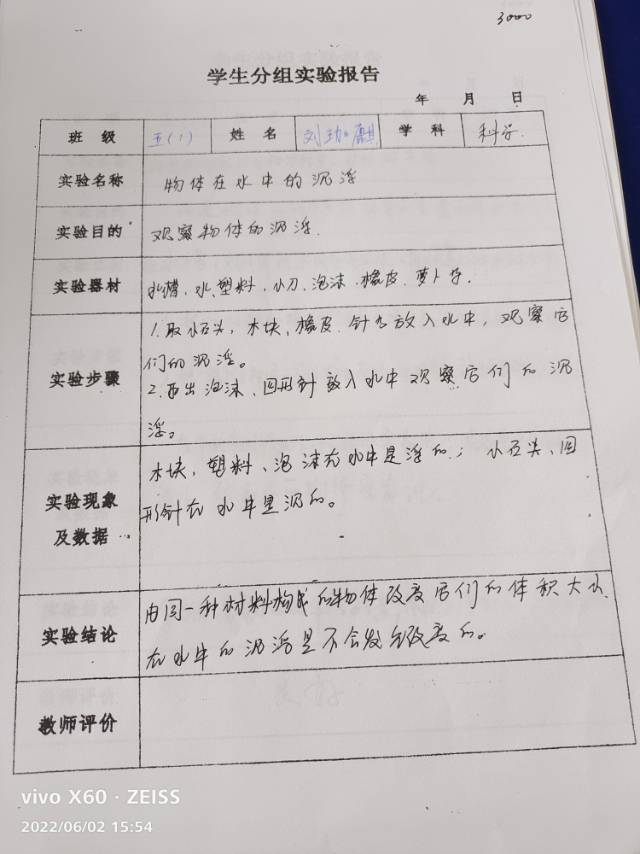 3000
学生分组实验报告
年 月 日
班 级 五(1) 姓 名 刘 麒 学 科 科学
实验名称 物体在水中的沉浮
实验目的 观察物体的沉浮.
实验器材 水槽、水、塑料、小刀、泡沫、橡皮、萝卜等.
1.取小石头、木块、橡皮、针 放入水中,观察它
们的沉浮。
实验步骤
2.再出泡沫、回形针放入水中观察它们的沉
浮。
木块、塑料、泡沫在水中是浮的;小石头、回
形针在水中是沉的。
实验现象
及数据
由同一种材料构成的物体改变它们的体积大小,
在水中的沉浮是不会发生改变的。
实验结论
教师评价
vivo X60 · ZEISS
2022/06/02 15:54